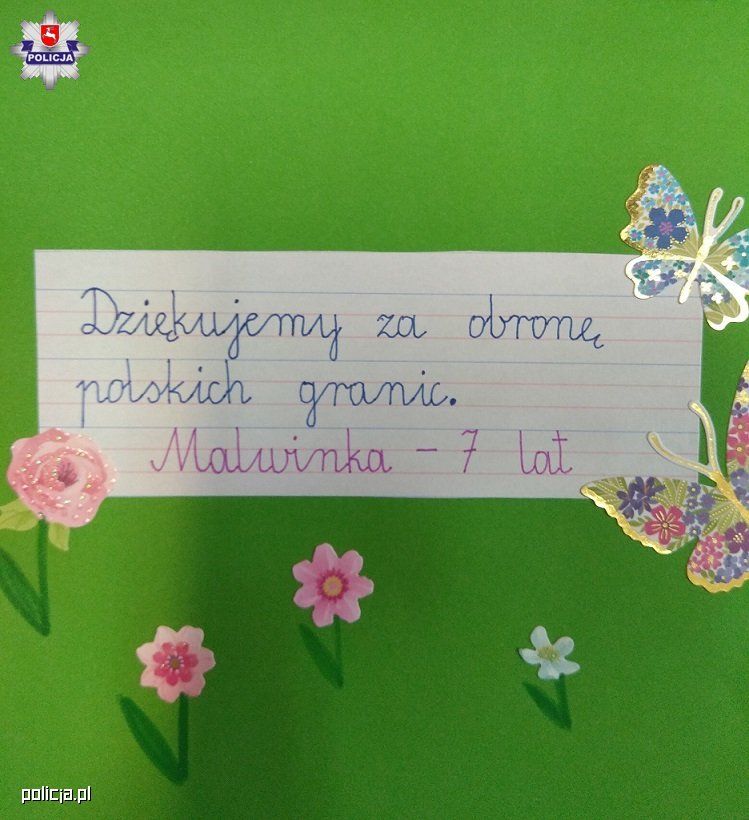 POLICJA
Dziękujemy za obronę
polskich granic.
Malwinka - 7 lat
policja.pl